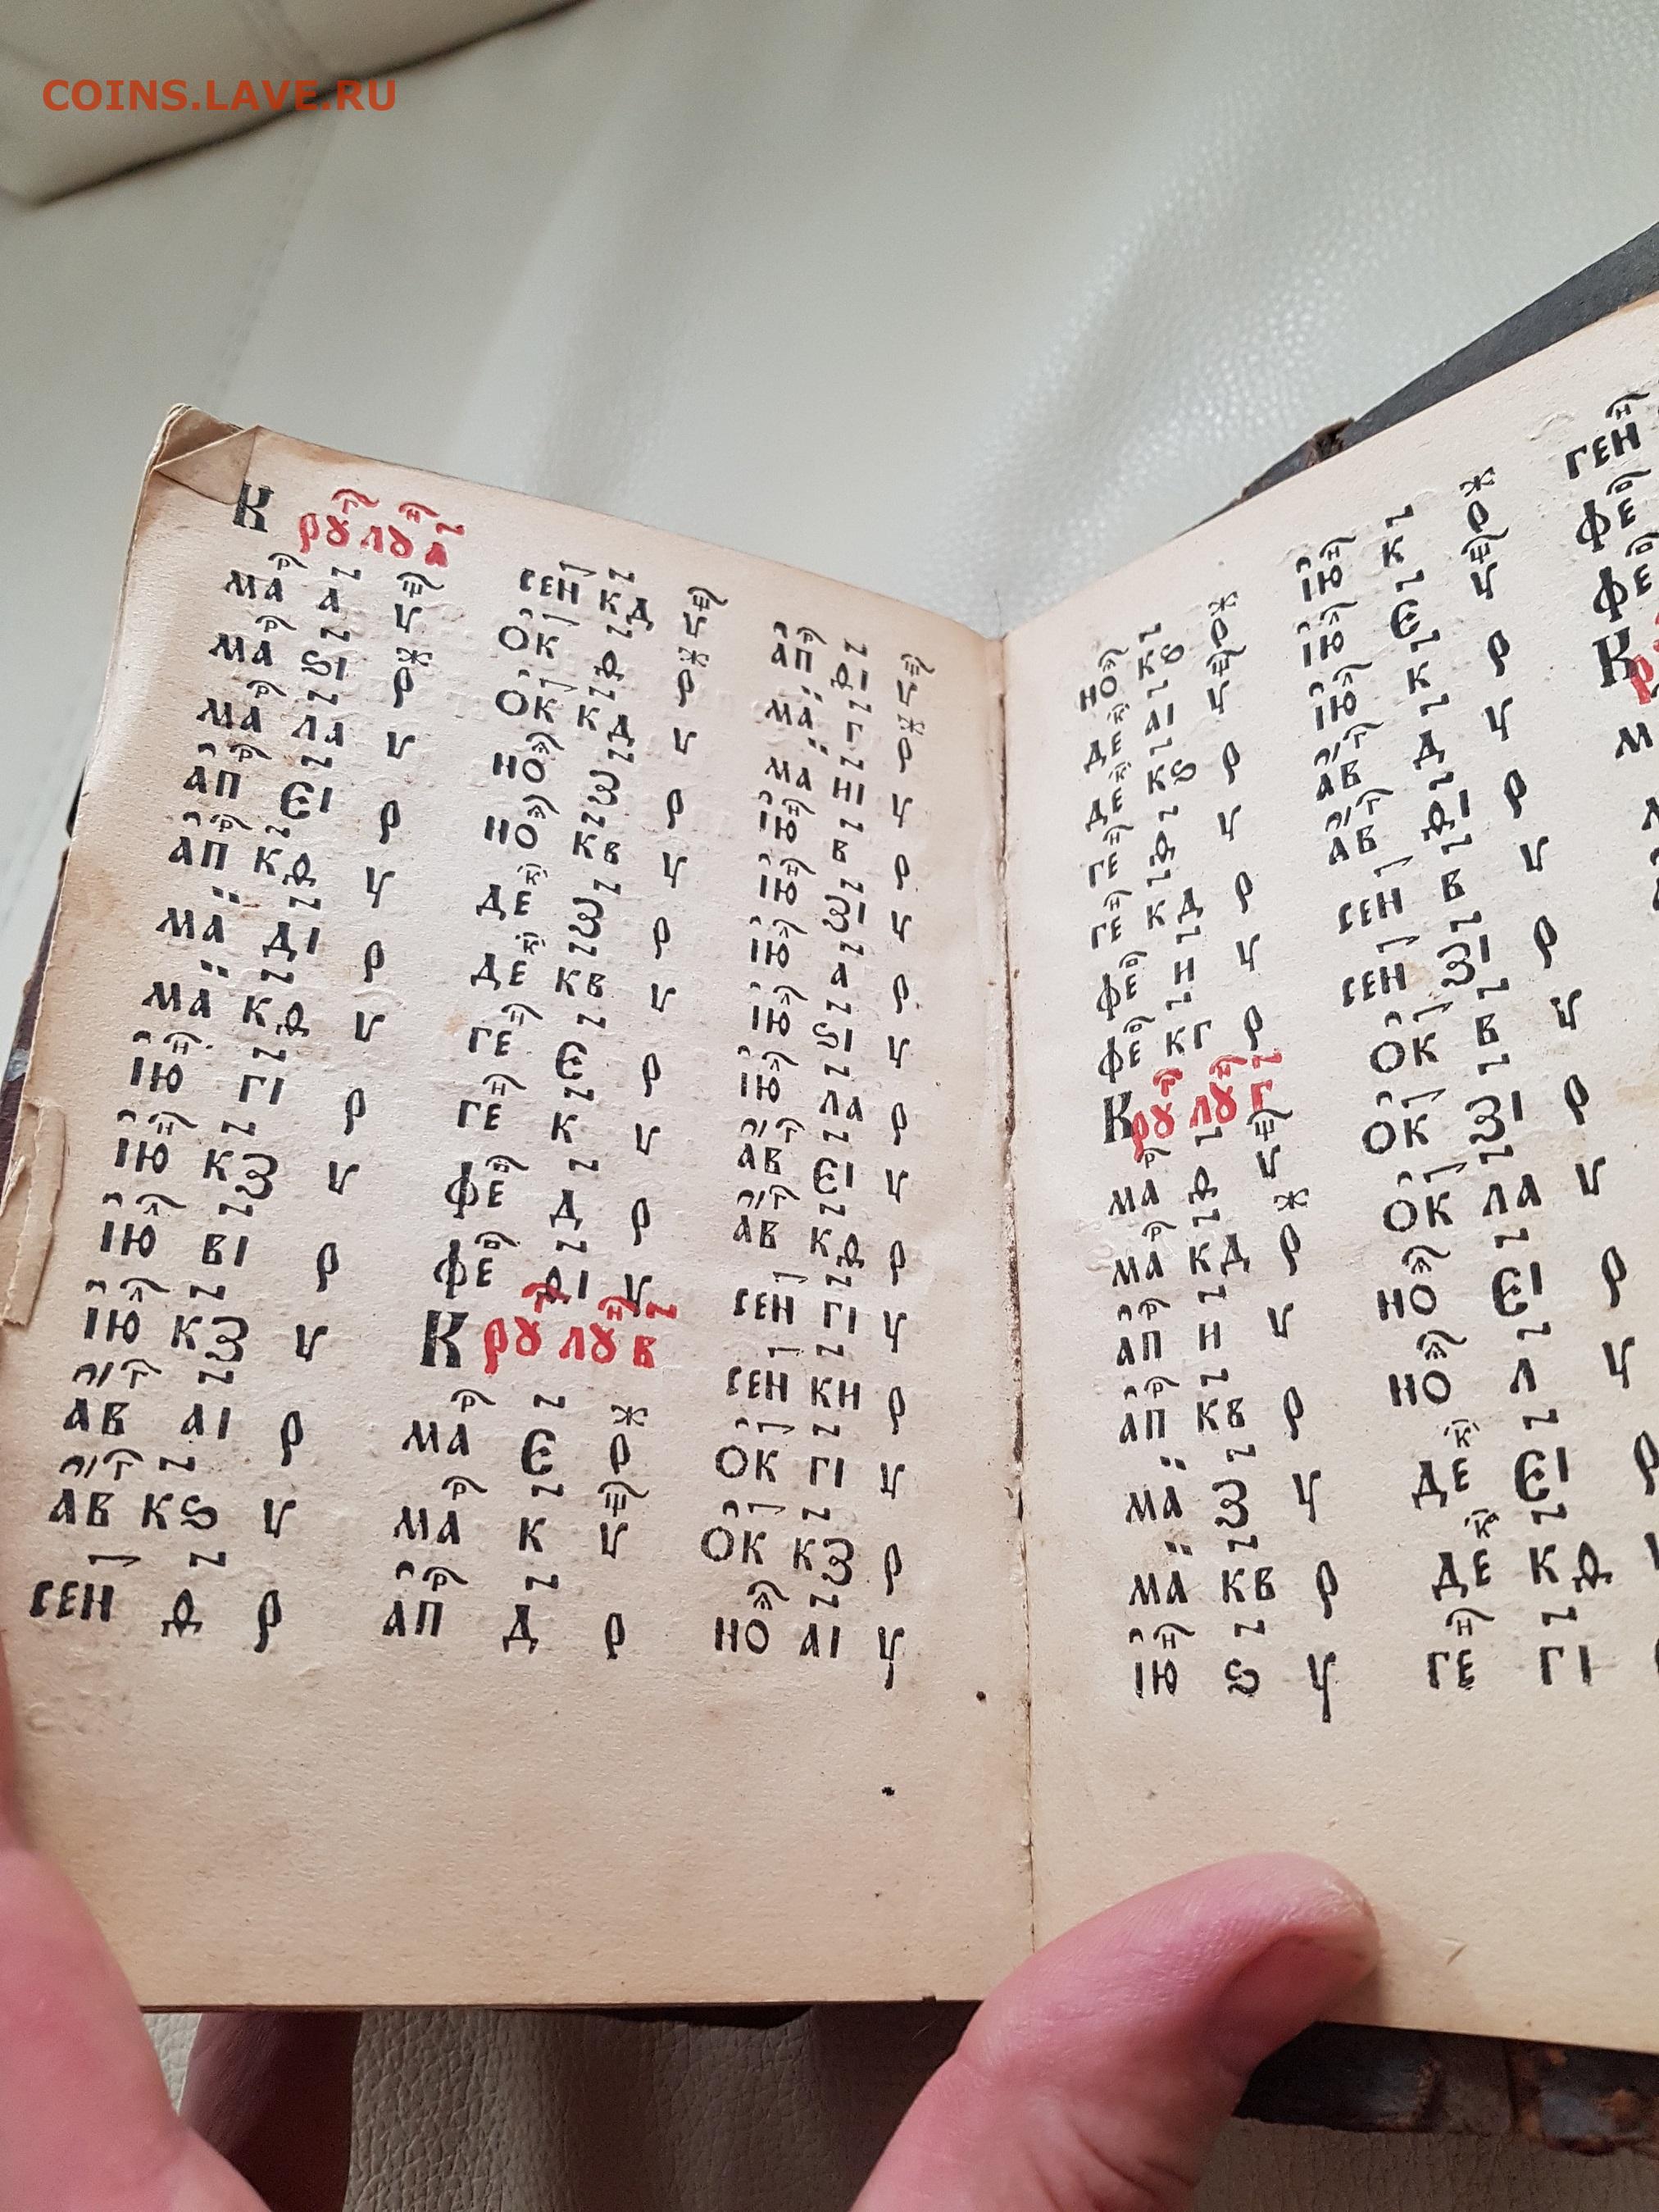 COINS.LAVE.RU
К рꙋ лꙋ а
ма а ч
ма ѕі р
ма ла ч
ап еі р
ап кѳ ч
ма ді р
ма кѳ ч
ію гі р
ію кз ч
ію ві р
ію кз ч
ав аі р
ав кѕ ч
сен ѳ р
сен кд ч
ок ѳ р
ок кд ч
но
но кв ч
де
де кв ч
ге е р
ге к ч
фе д р
фе ѳі ч
К рꙋ лꙋ в
ма е р
ма к ч
ап д р
ап ѳі ч
ма г р
ма иі ч
ію в р
ію ч
ію а р
ію ѕі ч
ію ла р
ав еі ч
ав кѳ р
сен гі ч
сен ки р
ок гі ч
ок кз р
но аі ч
но кѕ р
де аі ч
де кѕ р
ге ѳ ч
ге кд р
фе и ч
фе кг р
К рꙋ лꙋ г
ма ѳ ч
ма кд р
ап и ч
ап кв р
ма з ч
ма кв р
ію ѕ ч
ію к р
ію е ч
ію к р
ав д ч
ав ѳі р
сен в ч
сен р
ок в ч
ок зі р
ок ла ч
но еі р
но л ч
де еі р
де кѳ
ге гі
ген
фе
фе
К